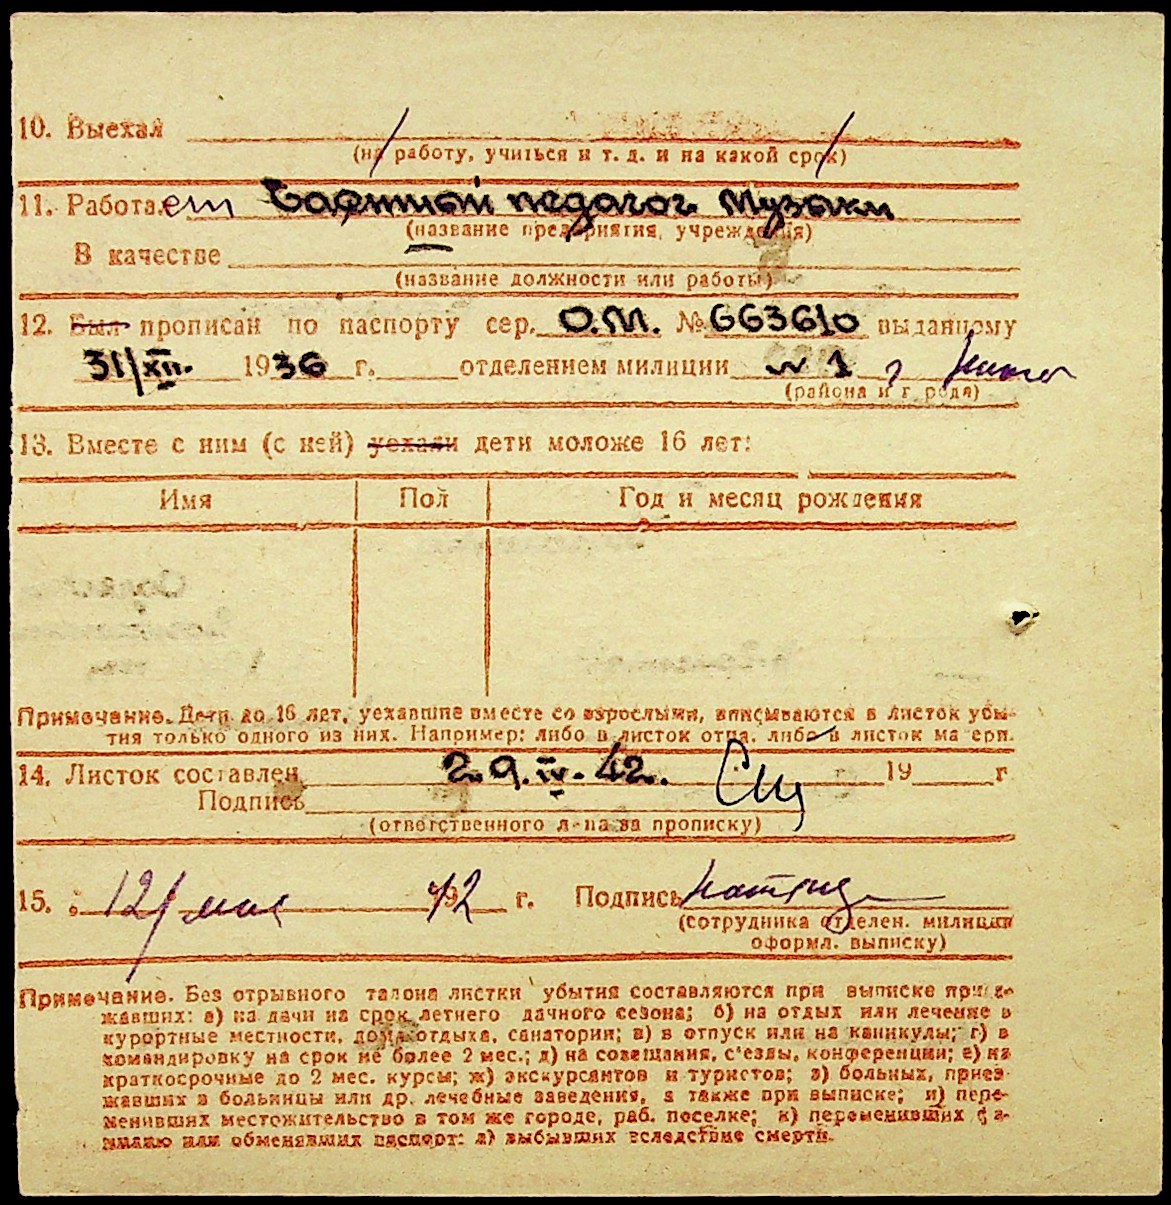 10. Выехал
(на работу, учиться и т. д. и на какой срок)
11. Работает Частный педагог Музыки
(название предприятия, учреждения)
В качестве
(название должности или работы)
12. Был прописан по паспорту сер. О.М. № 663610 выданному
31/XII. 1936 г. отделением милиции № 1 г
(района и города)
13. Вместе с ним (с ней) уехали дети моложе 16 лет:
Имя Пол Год и месяц рождения
Примечание. Дети до 16 лет, уехавшие вместе со взрослыми, вписываются в листок убы-
тия только одного из них. Например: либо в листок отца, либо в листок матери.
14. Листок составлен 29.IV.42. 19 г
Подпись
(ответственного лица за прописку)
15. 12/ мая 42 г. Подпись
(сотрудника отделен. милиции
оформл. выписку)
Примечание. Без отрывного талона листки убытия составляются при выписке приез-
жавших: а) на дачи на срок летнего дачного сезона; б) на отдых или лечение в
курортные местности, дома отдыха, санатории; в) в отпуск или на каникулы; г) в
командировку на срок не более 2 мес.; д) на совещания, с'езды, конференции; е) на
краткосрочные до 2 мес. курсы; ж) экскурсантов и туристов; з) больных, приез-
жавших в больницы или др. лечебные заведения, а также при выписке; и) пере-
менивших местожительство в том же городе, раб. поселке; к) переменивших фа-
милию или обменявших паспорт; л) выбывших вследствие смерти.